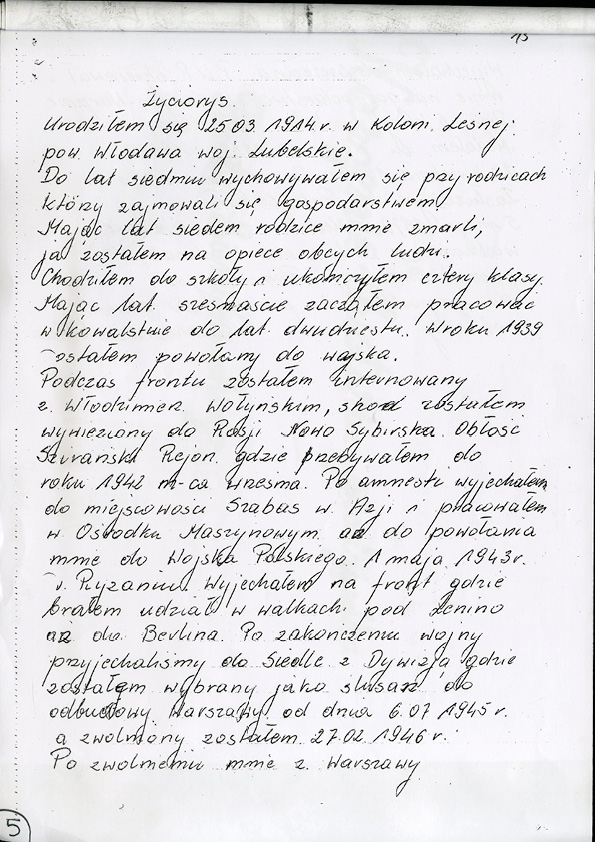 15
Życiorys.
Urodziłem się 25 03 1914 r. w Koloni. Lesnej
pow. Włodawa woj. Lubelskie.
Do lat siedmiu wychowywałem się przy rodzicach
którzy zajmowali się gospodarstwem.
Mając lat siedem rodzice mnie zmarli,
ja zostałem na opiece obcych ludzi.
Chodziłem do szkoły i ukończyłem cztery klasy.
Mając lat szesnaście zacząłem pracować
w kowalstwie do lat dwudziestu. W roku 1939
zostałem powołany do wojska.
Podczas frontu zostałem internowany
z. Włodzimierz. Wołyńskim, skąd zostałem
wywieziony do Rosji Nowo Sybirska. Obłość
Rejon. gdzie przebywałem do
roku 1942 m-ca wrzesnia. Po amnesti wyjechałem
do miejscowości Szabas w. Azji i pracowałem
w Ośrodku Maszynowym. aż do powołania
mnie do Wojska Polskiego. 1 maja 1943 r.
w. Ryzaniu. Wyjechałem na front gdzie
brałem udział w walkach pod Lenino
aż do. Berlina. Po zakończeniu wojny
przyjechaliśmy do Siedlc z Dywizją gdzie
zostałem wybrany jako ślusarz do
odbudowy Warszawy. od dnia 6.07 1945 r.
a zwolniony zostałem. 27.02 1946 r.
Po zwolnieniu mnie z. Warszawy
5